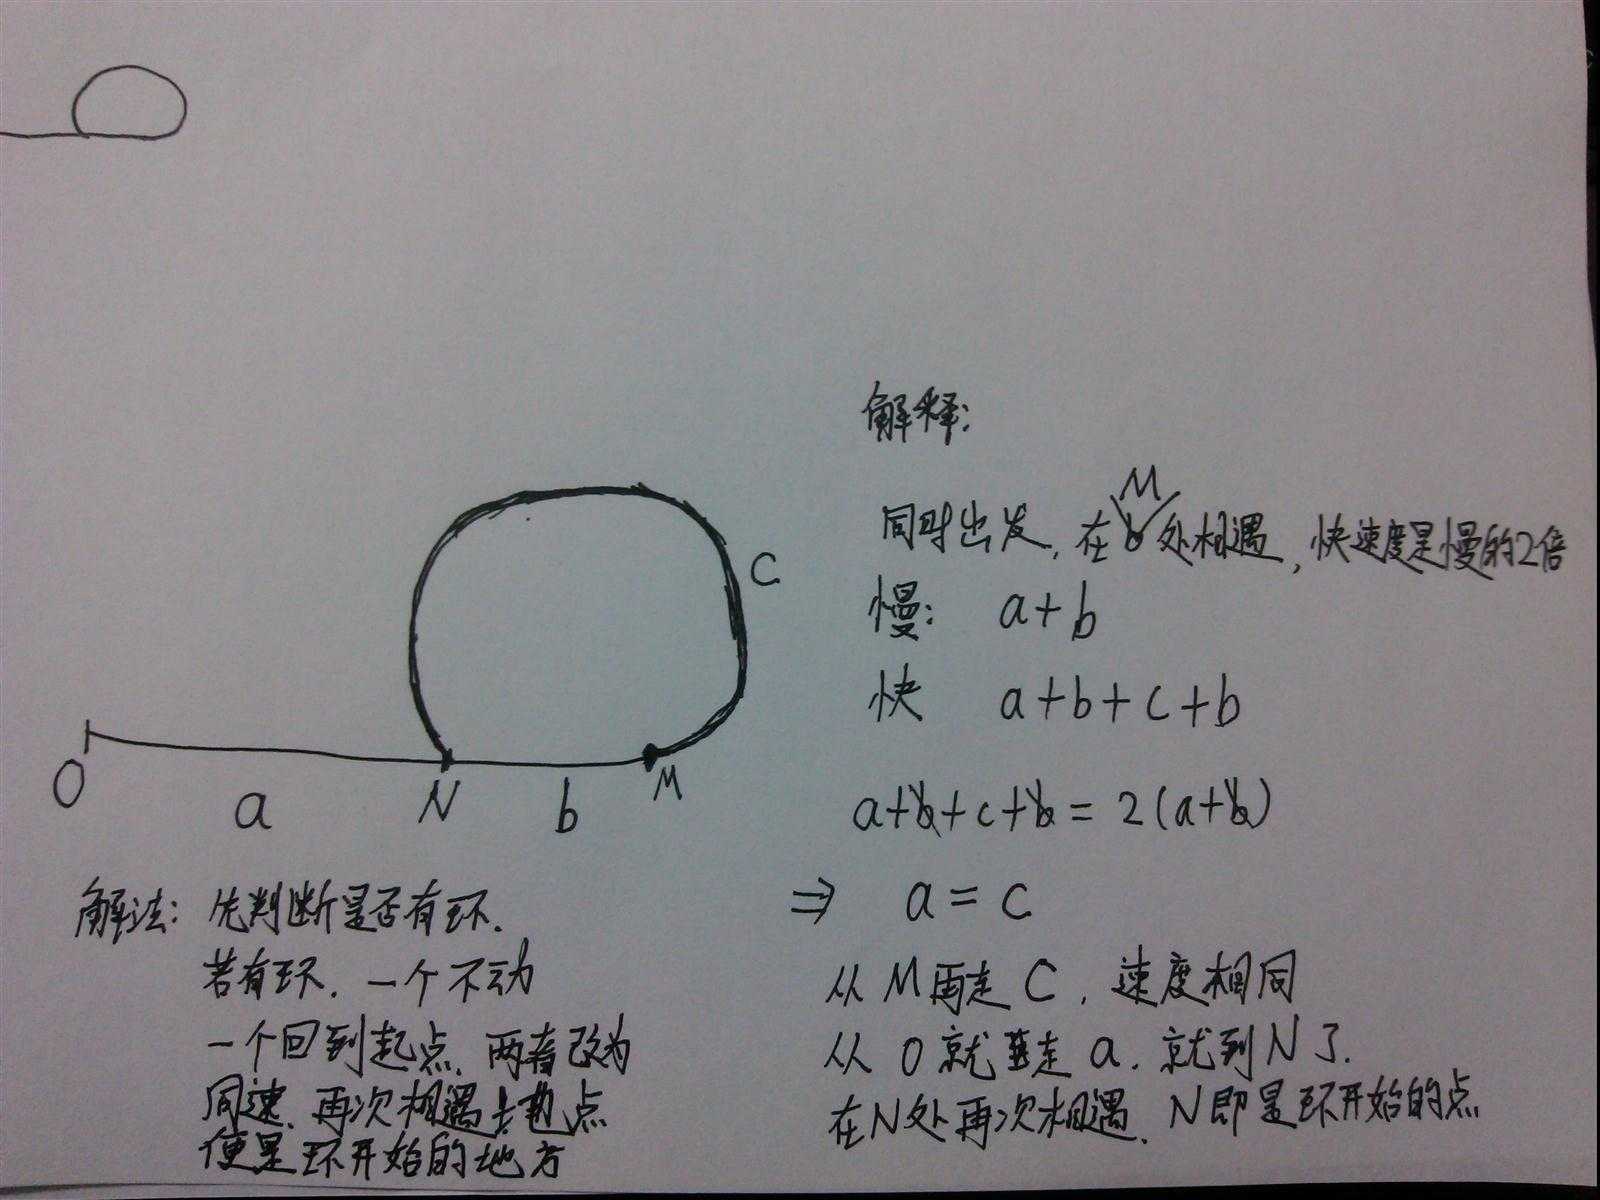 C
O
a
N
b
M
解法: 先判断是否有环.
若有环. 一个不动
一个回到起点. 两者改为
同速. 再次相遇地点
便是环开始的地方
解释:
M
同时出发, 在处相遇, 快速度是慢的2倍
慢: a+b
快 a+b+c+b
a+b+c+b = 2(a+b)
⇒ a = c
从 M 再走 C, 速度相同
从 O 就走 a. 就到 N 了.
在N处再次相遇. N即是环开始的点